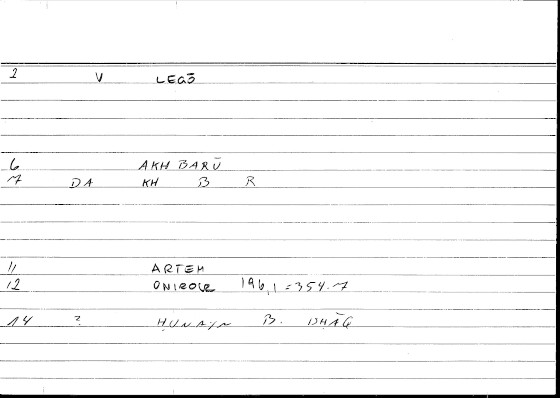 2 V LEGŌ
6 AKHBARŪ
7 DA KH B R
11 ARTEM
12 ONIROCR 196,1=354.7
14 ? ḤUNAYN B. ISḤĀQ